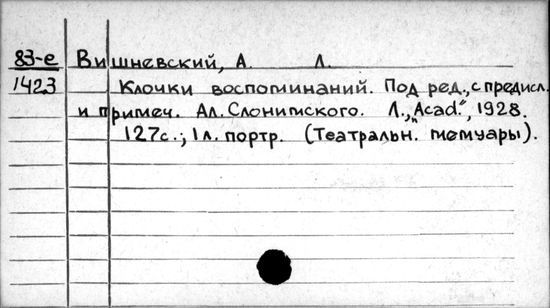 83-е Вишневский, А. Л.
1423 Клочки воспоминаний. Под ред., с предисл.
и примеч. Ал. Слонимского. Л., „Acad.", 1928.
127с.; 1 л. портр. (Театральн. мемуары).